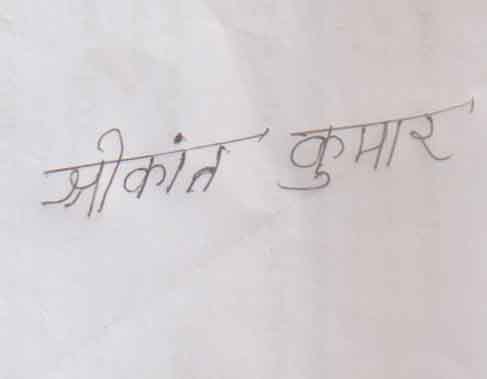 श्रीकांत कुमार